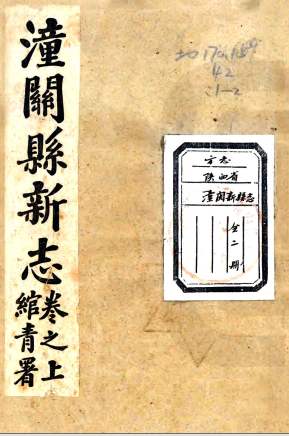 潼關縣新志
卷之上
綰青署
42
1-2
方志
陕西省
潼関新縣志
全二册